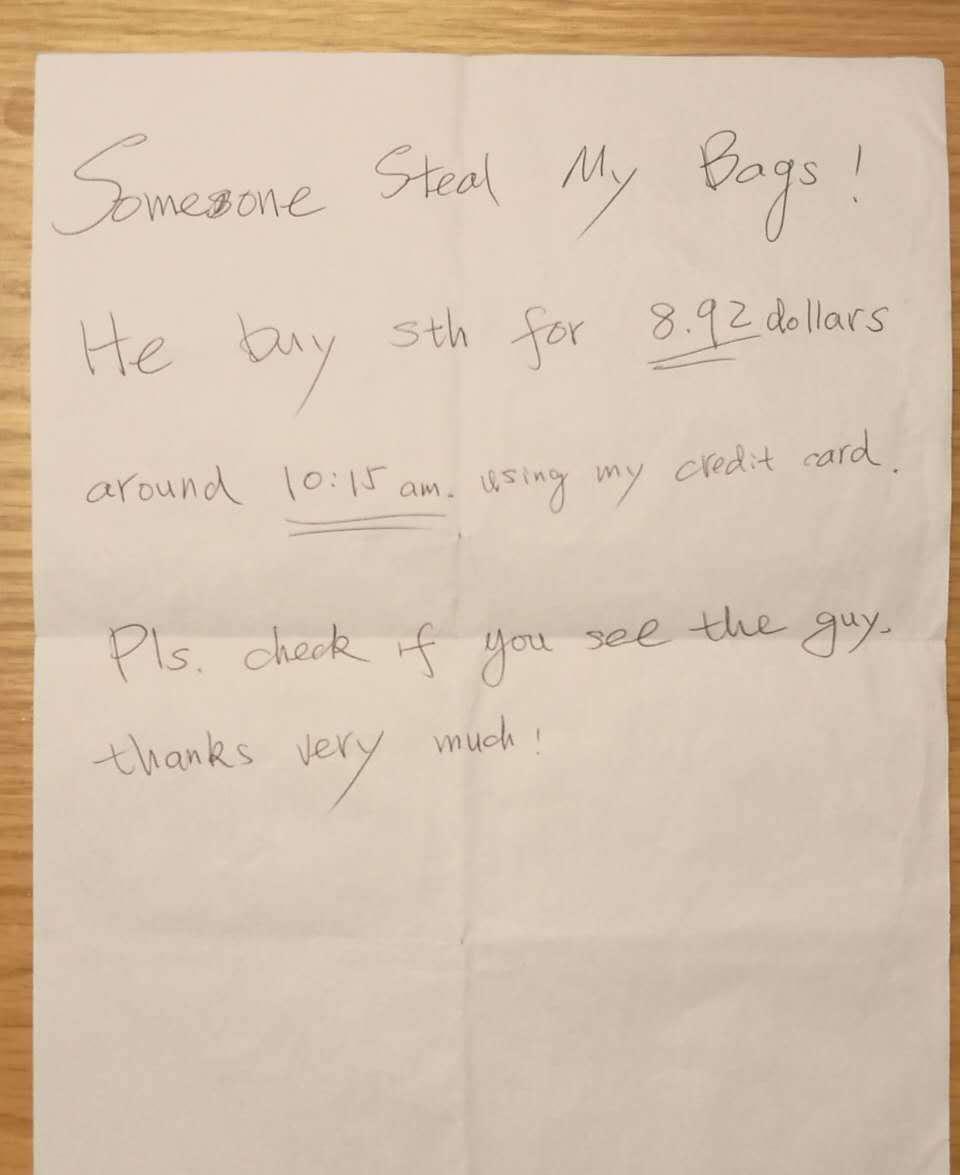 Someone Steal My Bags!
He buy sth for 8.92 dollars
around 10:15 am. using my credit card.
Pls. check if you see the guy.
thanks very much!